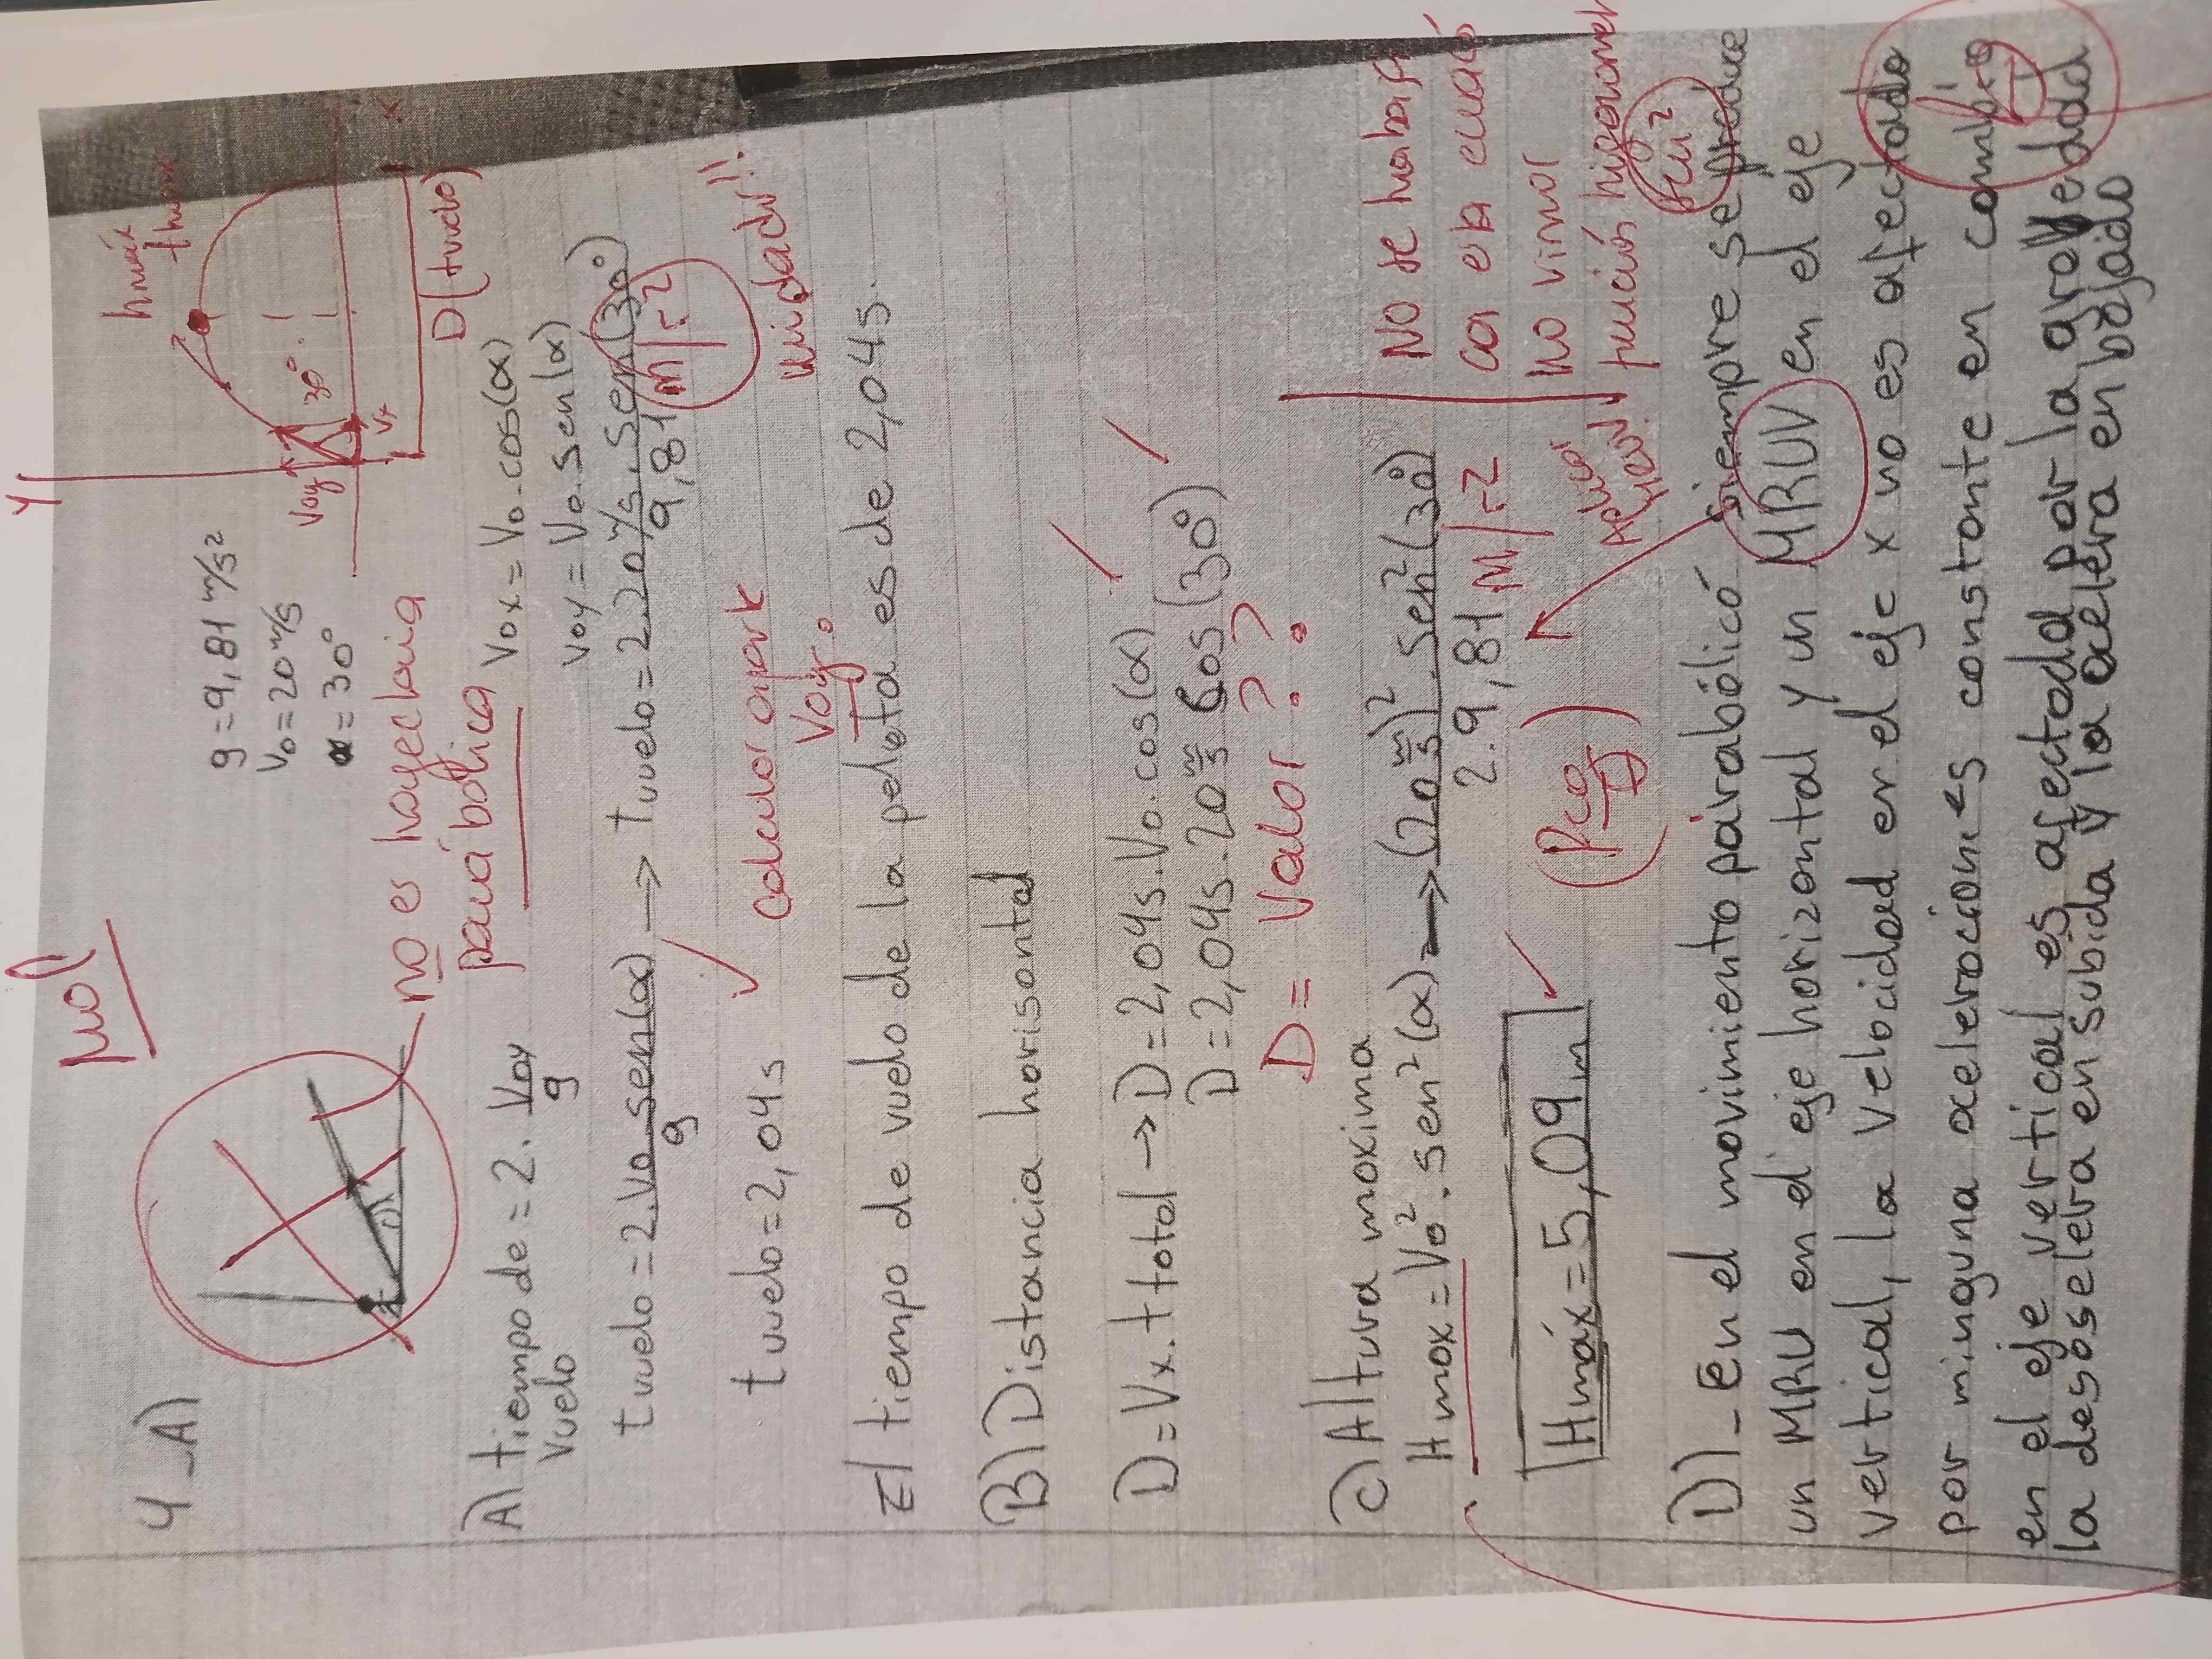 mol
4_A)
g = 9,81 m/s²
V0 = 20 m/s
α = 30°
Y
hmáx
Voy
30°
Vx
x
D(tvuelo)
no es trayectoria
parabólica
Vox = Vo.cos(α)
Voy = Vo.sen(α)
A) tiempo de = 2. Voy/g
vuelo
t vuelo = 2.Vo.sen(α)/g → tvuelo = 2.20 m/s.sen(30°)/9,81 m/s2
unidades!!
t vuelo = 2,04 s
calcular aparte
Voy.
El tiempo de vuelo de la pelota es de 2,04 s.
B) Distancia horisontal
D = Vx.t total → D = 2,04s.Vo.cos(α)
D = 2,04s.20 m/s cos(30°)
D = Valor ??
C) Altura maxima
Hmax = Vo².sen²(α) → (20 m/s)².sen²(30°)
2.9,81 m/s2
No se trabaj
ca esta ecuació
no vimos
función trigonomet
sen²
Aplicar
MRUV
Hmáx = 5,09m
D)_ En el movimiento párabólicó siempre se produce
un MRU en el eje horizontal y un MRUV en el eje
vertical, la velocidad en el eje x no es afectado
por minguna aceleraciones constante en cambio
en el eje vertical es afectada por la gravedad
la desaselera en subida y la acelera en bajado